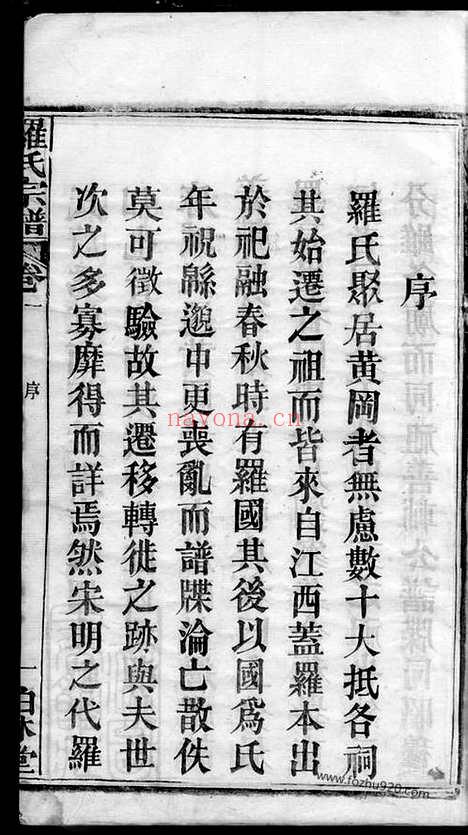 序
羅氏聚居黃岡者無慮數十大抵各祠
其始遷之祖而皆來自江西蓋羅本出
於祀融春秋時有羅國其後以國爲氏
年祝緜邈中更喪亂而譜牒淪亡散佚
莫可徵驗故其遷移轉徙之跡與夫世
次之多寡靡得而詳焉然宋明之代羅
羅氏宗譜
卷一
序
一
堂
nayona.cn
www.fozhu920.com